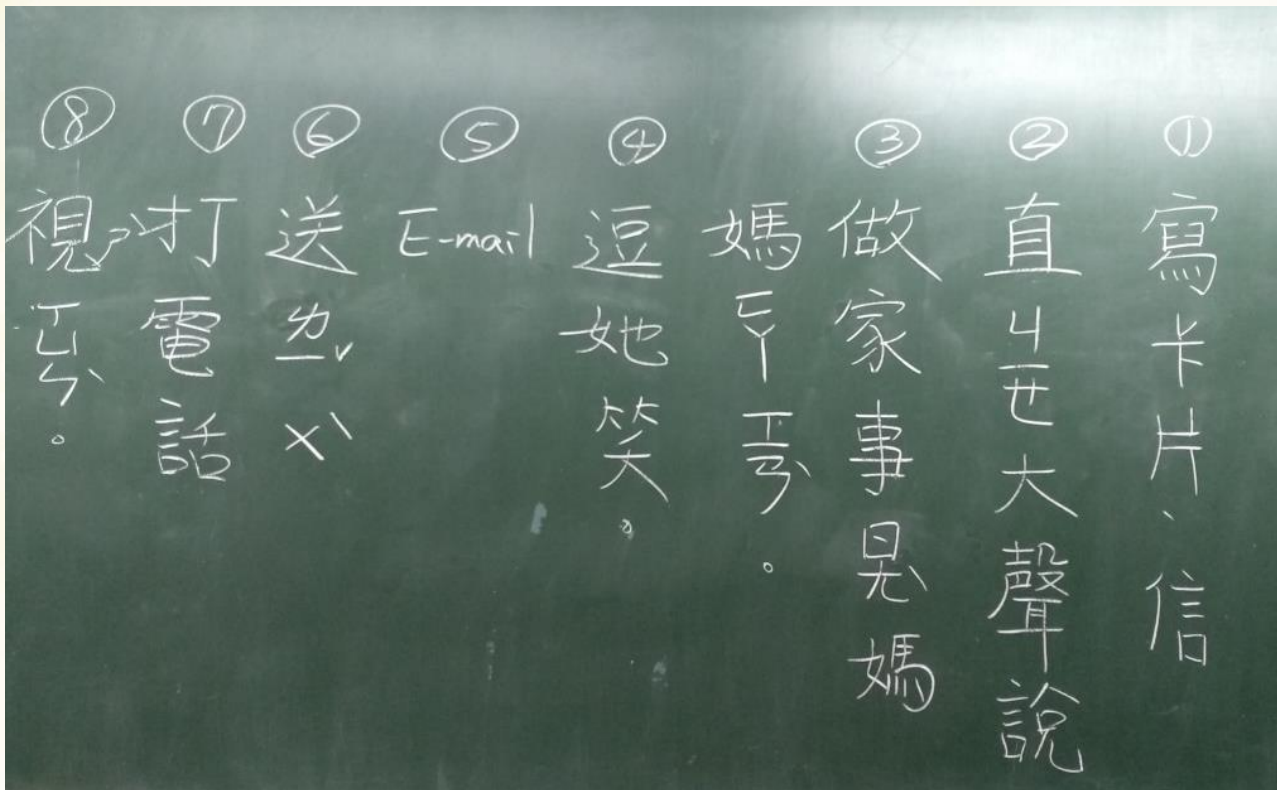 ①寫卡片、信
②直ㄐㄧㄝ大聲說
③做家事ㄖㄤˋ媽
媽ㄈㄚㄒㄧㄢˋ。
④逗她笑。
⑤E-mail
⑥送ㄌㄧˇㄨˋ
⑦打電話
⑧視ㄒㄩㄣˋ。